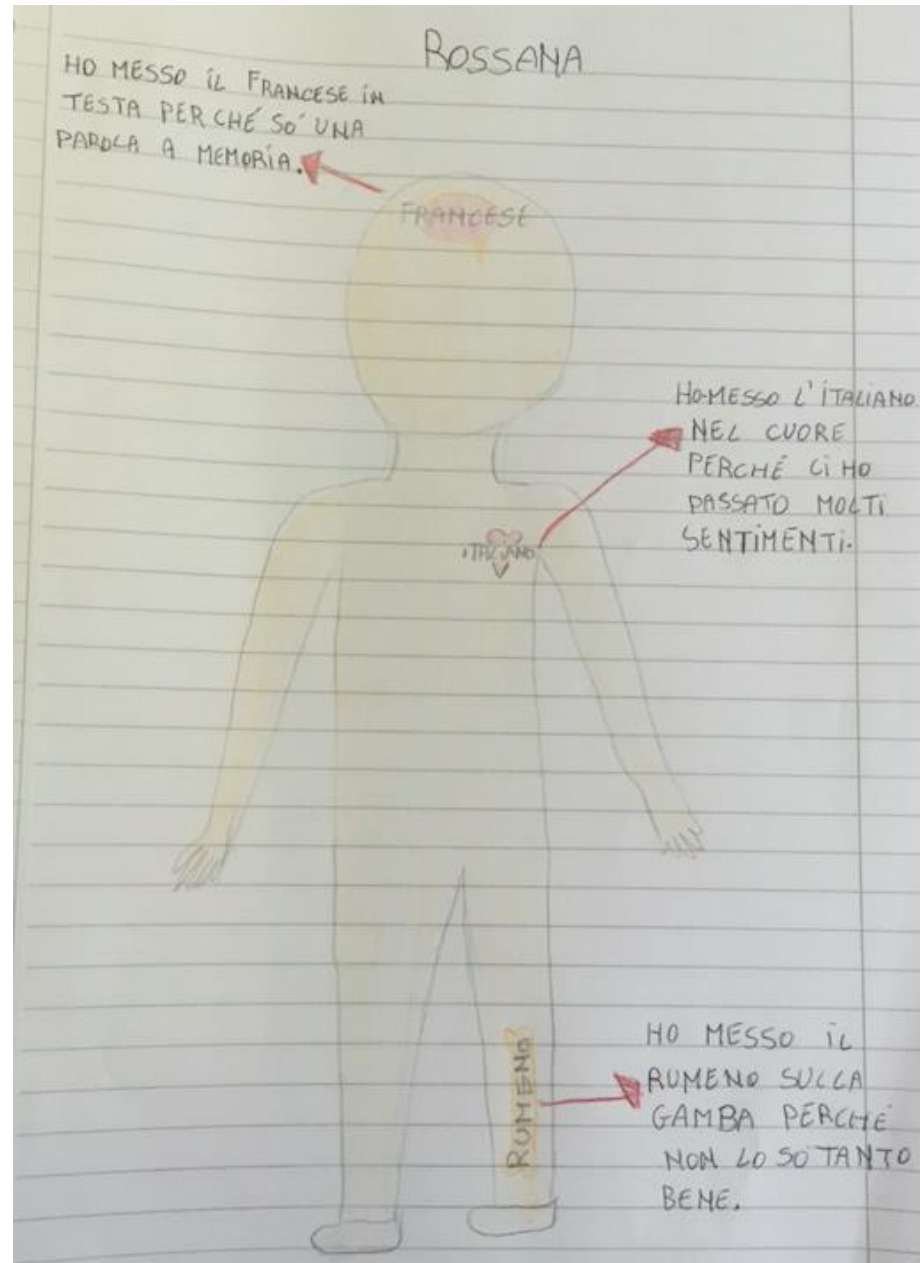 ROSSANA
HO MESSO iL FRANCESE iN
TESTA PERCHÉ SO' UNA
PAROLA A MEMORiA.
FRANCESE
HO MESSO L'iTALiANO
NEL CUORE
PERCHÉ Ci HO
PASSATO MOLTi
SENTiMENTi.
iTALiANO
HO MESSO iL
RUMENO SULLA
GAMBA PERCHÉ
NON LO SO TANTO
BENE.
RUMENO